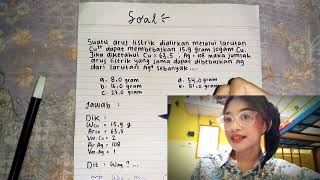 Soal :-
Suatu arus listrik dialirkan melalui larutan
Cu²⁺ dapat membebaskan 15,9 gram logam Cu.
Jika diketahui Cu = 63,5 , Ag = 108 maka jumlah
arus listrik yang sama dapat dibebaskan Ag
dari larutan Ag⁺ sebanyak ....
a. 8,0 gram d. 54,0 gram
b. 16,0 gram e. 81,0 gram
c. 27,0 gram
Jawab :
Dik :
Wcu = 15,9 g
Ar Cu = 63,5
Val. Cu = 2
Ar Ag = 108
Val. Ag = 1
Dit : WAg ? ...